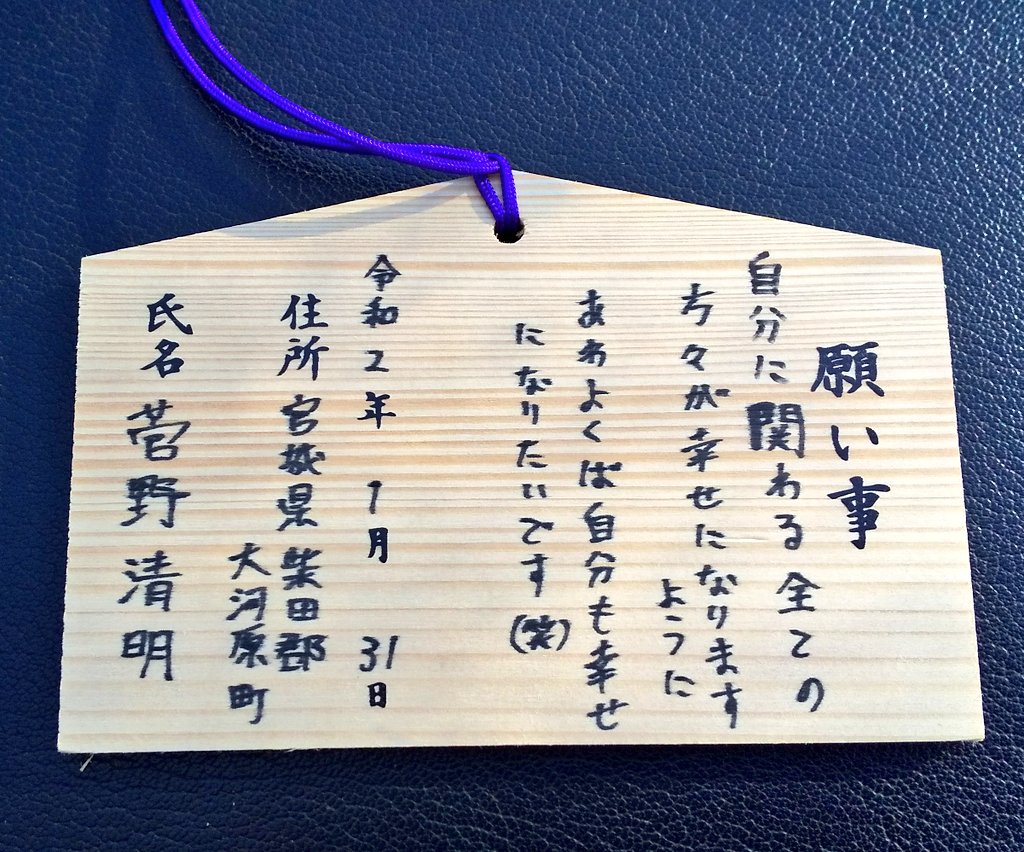 願い事
自分に関わる全ての
方々が幸せになります
ように
あわよくば自分も幸せ
になりたいです(笑)
令和2年 1月 31日
住所 宮城県 柴田郡
大河原町
氏名 菅野 清明